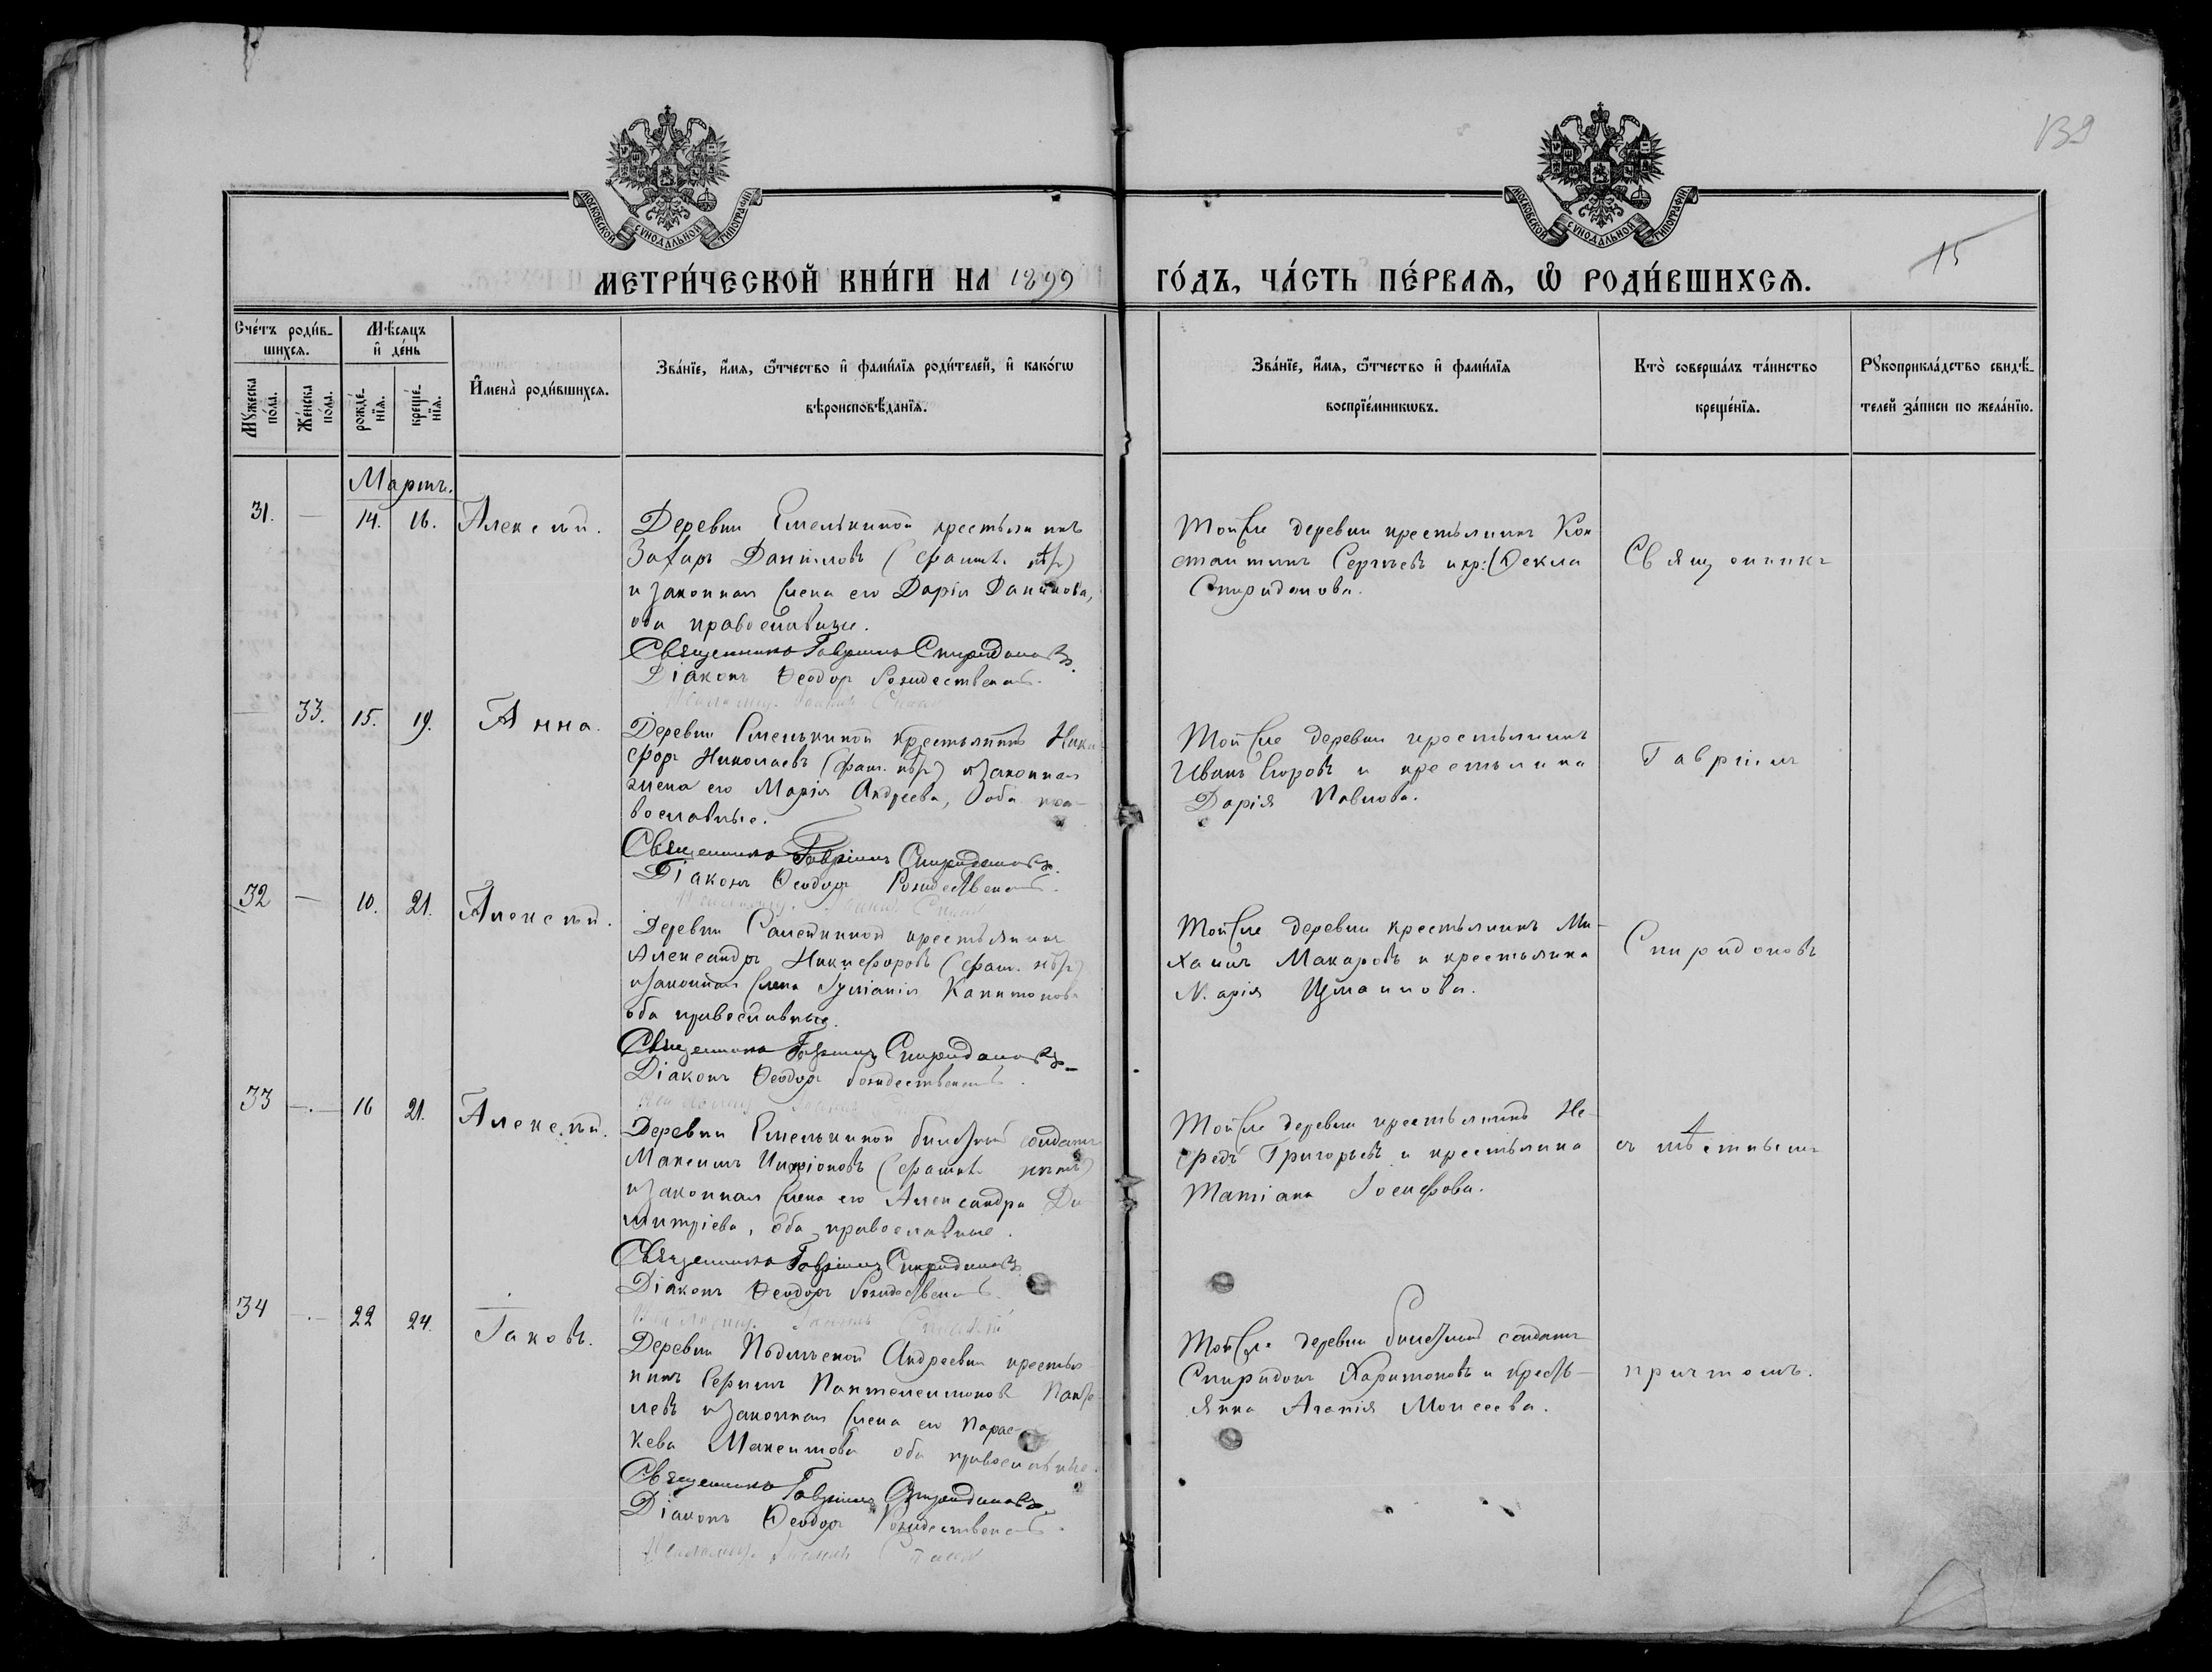 139
МОСКОВСКОЙ СУНОДАЛЬНОЙ ТИПОГРАФІИ
МОСКОВСКОЙ СУНОДАЛЬНОЙ ТИПОГРАФІИ
15
МЕТРИ́ЧЕСКОЙ КНИ́ГИ НА 1899 ГО́ДЪ, ЧА́СТЬ ПЕ́РВАѦ, Ѡ҆ РОДИ́ВШИХСѦ.
Сче́тъ роди́в-
шихсѧ.
Мꙋжеска по́ла.
Же́нска по́ла.
Мѣ́сѧцъ
и҆ де́нь
рожде́-
нїѧ.
креще́-
нїѧ.
И҆мена̀ роди́вшихсѧ.
Зва́нїе, и҆́мѧ, ѻ҆́тчество и҆ фами́лїѧ роди́телей, и҆ како́гѡ
вѣроисповѣ́данїѧ.
Зва́нїе, и҆́мѧ, ѻ҆́тчество и҆ фами́лїѧ
воспрїе́мникѡвъ.
Кто̀ соверша́лъ та́инство
креще́нїѧ.
Рꙋкоприкла́дство свидѣ́-
телей за́писи по жела́нїю.
Мартъ.
31. — 14. 16. Алексѣй.
Деревни Емелькиной крестьянинъ
Захаръ Даниловъ (фамил. нѣтъ)
и законная жена его Дарія Данилова,
оба православные.
Священникъ Гавріилъ Спиридоновъ.
Діаконъ Ѳеодоръ Рождественскій.
Тойже деревни крестьянинъ Кон
стантинъ Сергѣевъ и кр: Ѳекла
Спиридонова.
Священникъ
— 33. 15. 19. Анна.
Деревни Емелькиной крестьянинъ Ники
форъ Николаевъ (фам. нѣтъ) и законная
жена его Марія Андреева, оба пра-
вославные.
Священникъ Гавріилъ Спиридоновъ.
Діаконъ Ѳеодоръ Рождественскій.
Тойже деревни крестьянинъ
Иванъ Егоровъ и крестьянка
Дарія Павлова.
Гавріилъ
32 — 10. 21. Алексѣй.
Деревни крестьянинъ
Александръ Никифоровъ (фам. нѣтъ)
и законная жена Іуліанія Капитонова
оба православные.
Священникъ Гавріилъ Спиридоновъ
Діаконъ Ѳеодоръ Рождественскій.
Тойже деревни крестьянинъ Ми-
хаилъ Макаровъ и крестьянка
Марія Измаилова.
Спиридоновъ
33 — 16 21. Алексѣй.
Деревни Емелькиной билетный солдатъ
Максимъ (фамил. нѣтъ)
и законная жена его Александра Ди
митріева, оба православные.
Священникъ Гавріилъ Спиридоновъ
Діаконъ Ѳеодоръ Рождественскій.
Тойже деревни крестьянинъ Не-
федъ Григорьевъ и крестьянка
Татіана Іосифова.
съ мѣстнымъ
34 — 22 24. Іаковъ.
Деревни Андреевки крестья
нинъ Пантелеимоновъ
и законная жена его Парас-
кева Максимова оба православные.
Священникъ Гавріилъ Спиридоновъ
Діаконъ Ѳеодоръ Рождественскій.
Тойже деревни билетный солдатъ
Спиридонъ Харитоновъ и кресть-
янка Агапія Моисеева.
причтомъ.